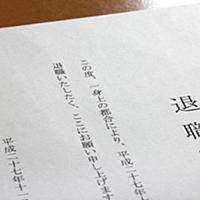 退職
この度、一身上の都合により、平成二十七年十
退職いたしたく、ここにお願い申し上げます
平成二十七年十一